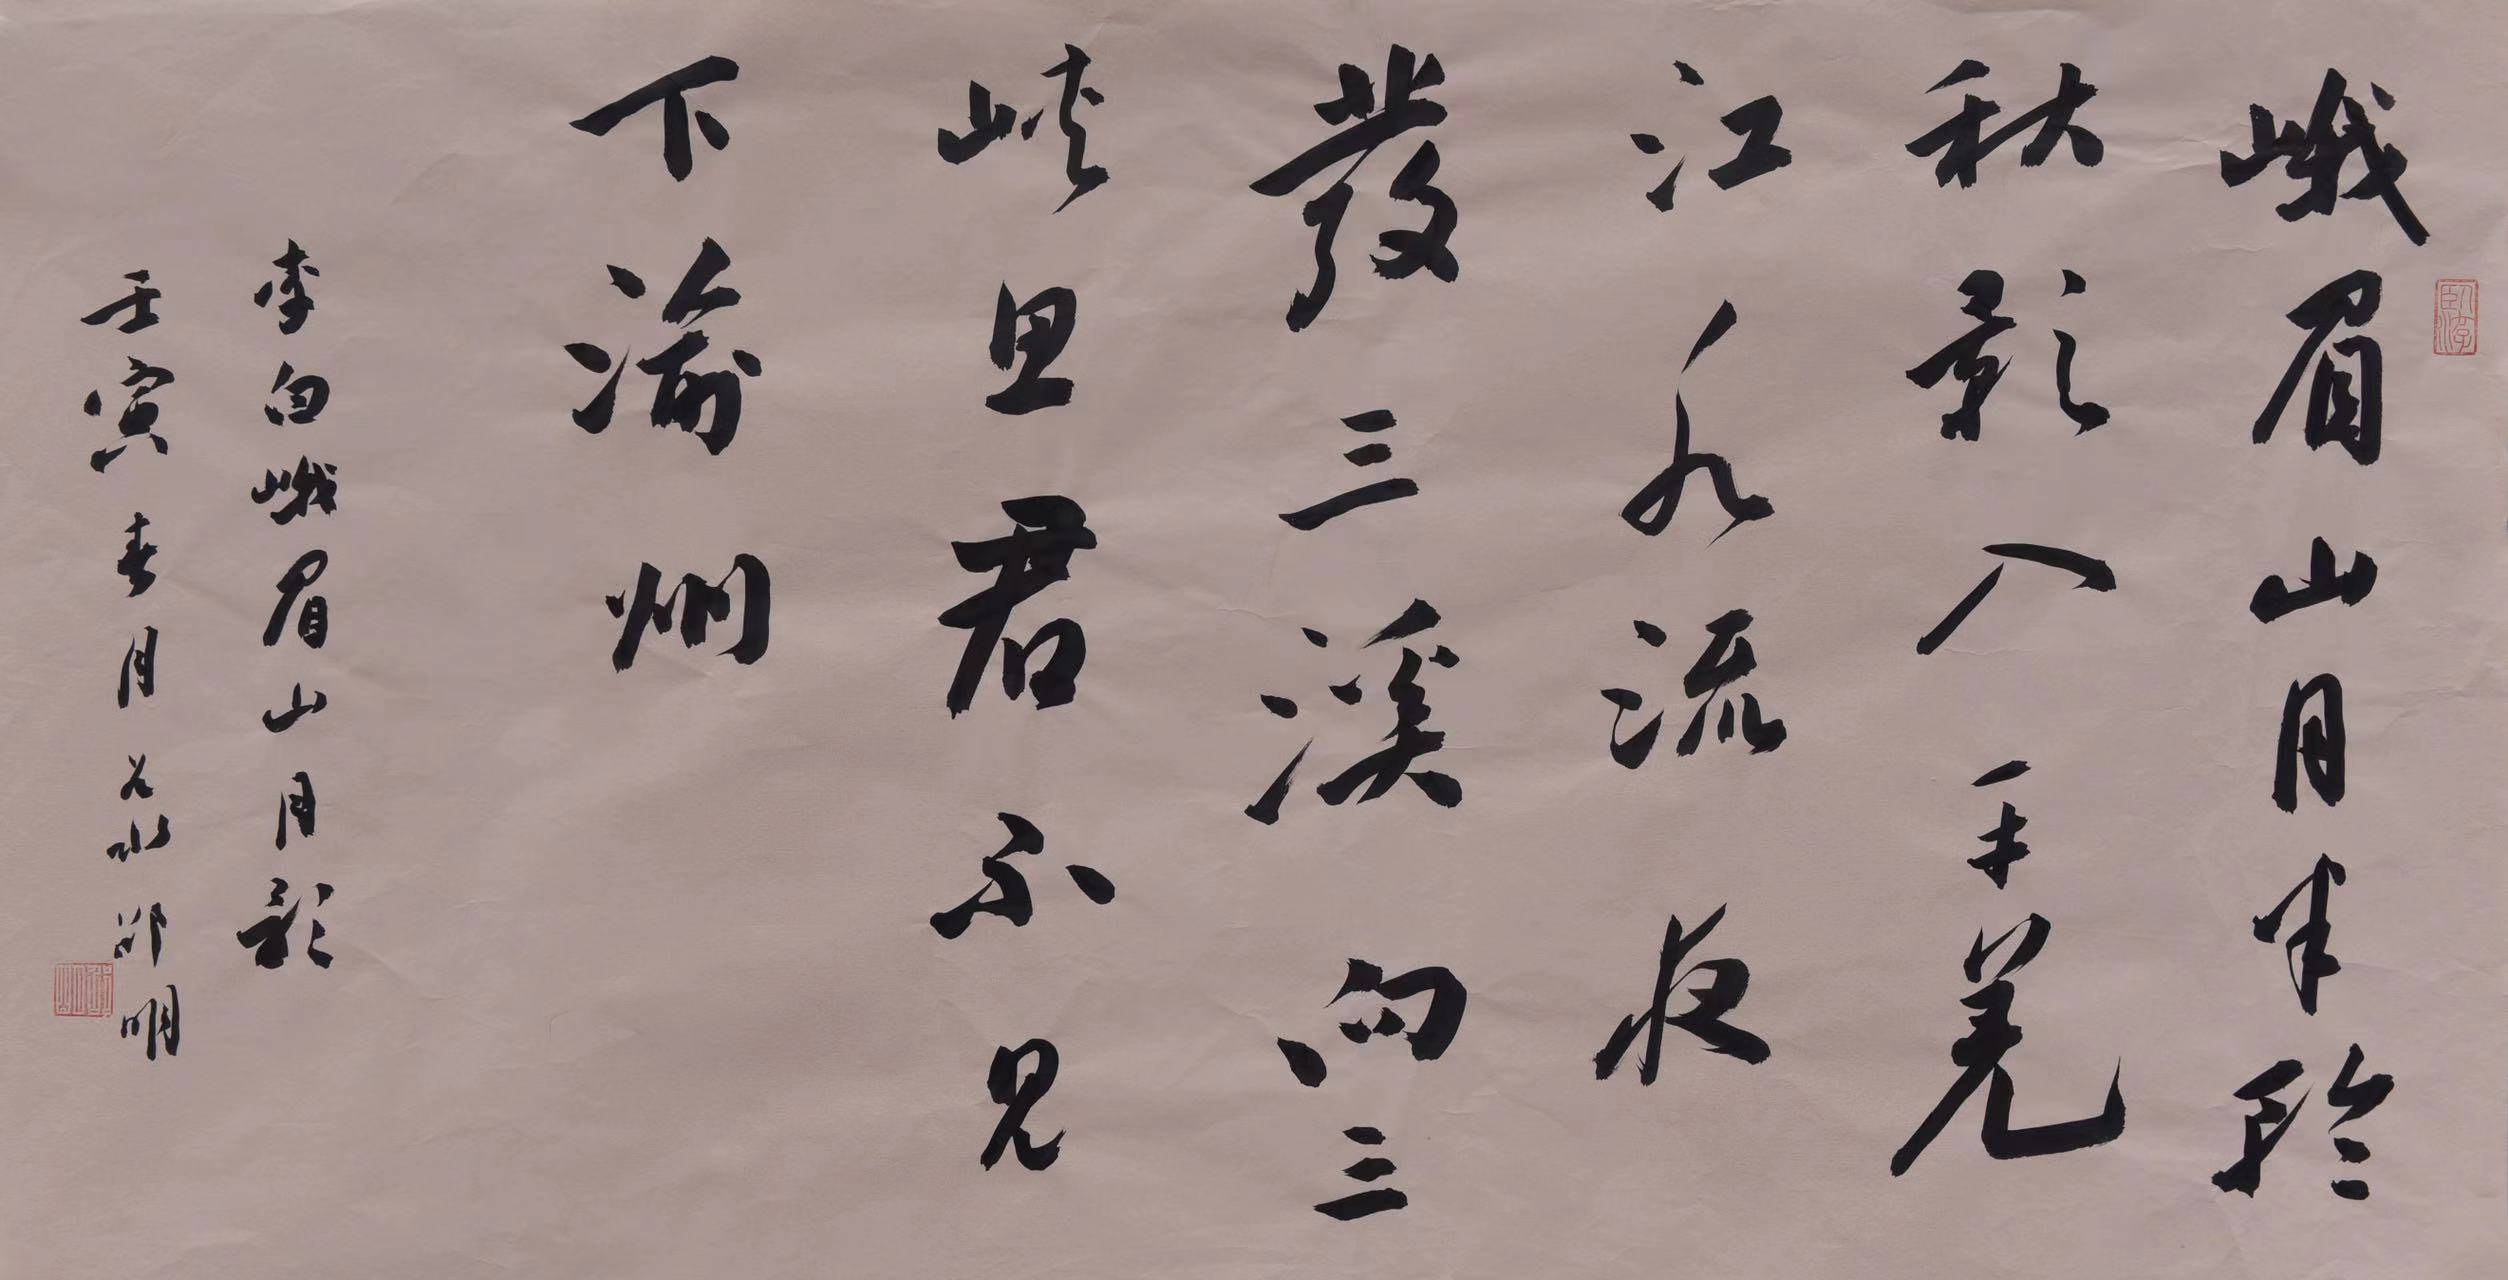 峨眉山月半輪
秋影入平羌
江水流夜
發三溪向三
峽思君不見
下渝州
李白峨眉山月歌
壬寅春月谷水邵明